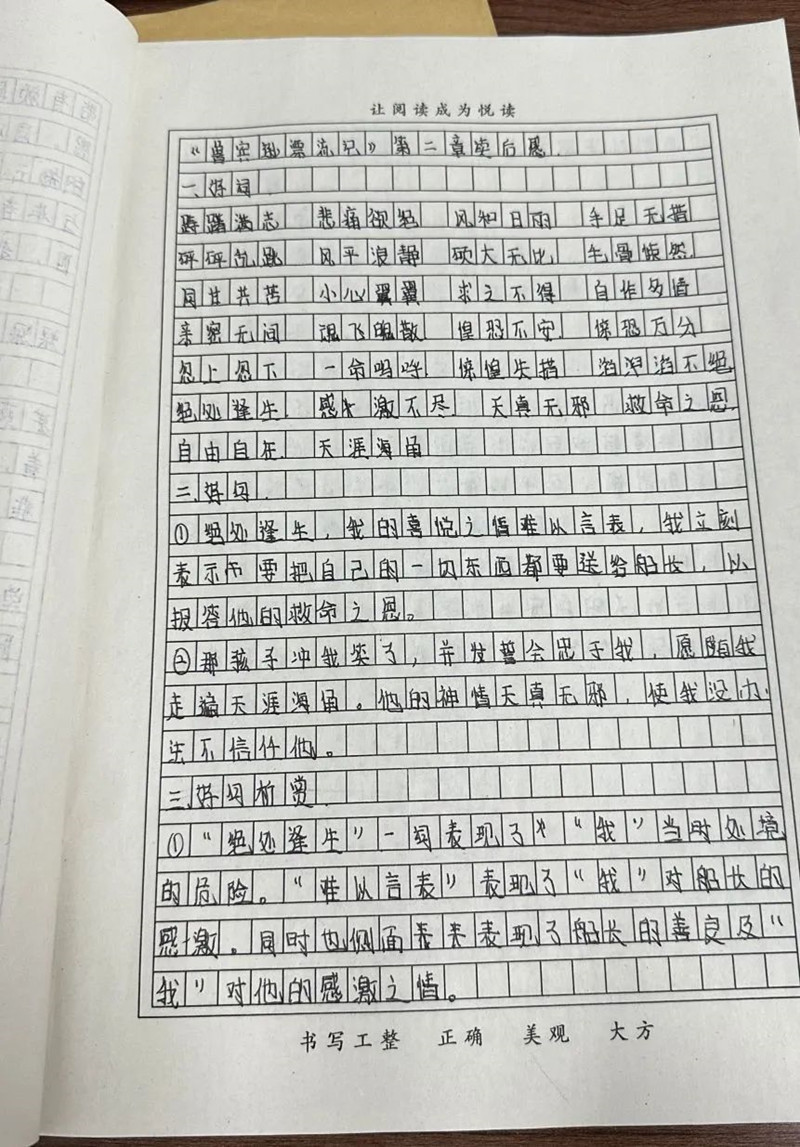 让阅读成为悦读
《鲁宾逊漂流记》第二章读后感
一、好词
踌躇满志 悲痛欲绝 风和日丽 手足无措
砰砰沉跳 风平浪静 硕大无比 毛骨悚然
同甘共苦 小心翼翼 求之不得 自作多情
亲密无间 魂飞魄散 惶恐不安 惊恐万分
忽上忽下 一命呜呼 惊惶失措 滔滔不绝
绝处逢生 感激不尽 天真无邪 救命之恩
自由自在 天涯海角
二、好句
①绝处逢生，我的喜悦之情难以言表，我立刻
表示要把自己的一切东西都要送给船长，以
报答他的救命之恩。
②那孩子冲我笑了，并发誓会忠于我，愿随我
走遍天涯海角。他的神情天真无邪，使我没办
法不信任他。
三、好句析赏
①“绝处逢生”一词表现了“我”当时处境
的危险。“难以言表”表现了“我”对船长的
感激。同时也侧面表来表现了船长的善良及“
我”对他的感激之情。
书写工整 正确 美观 大方